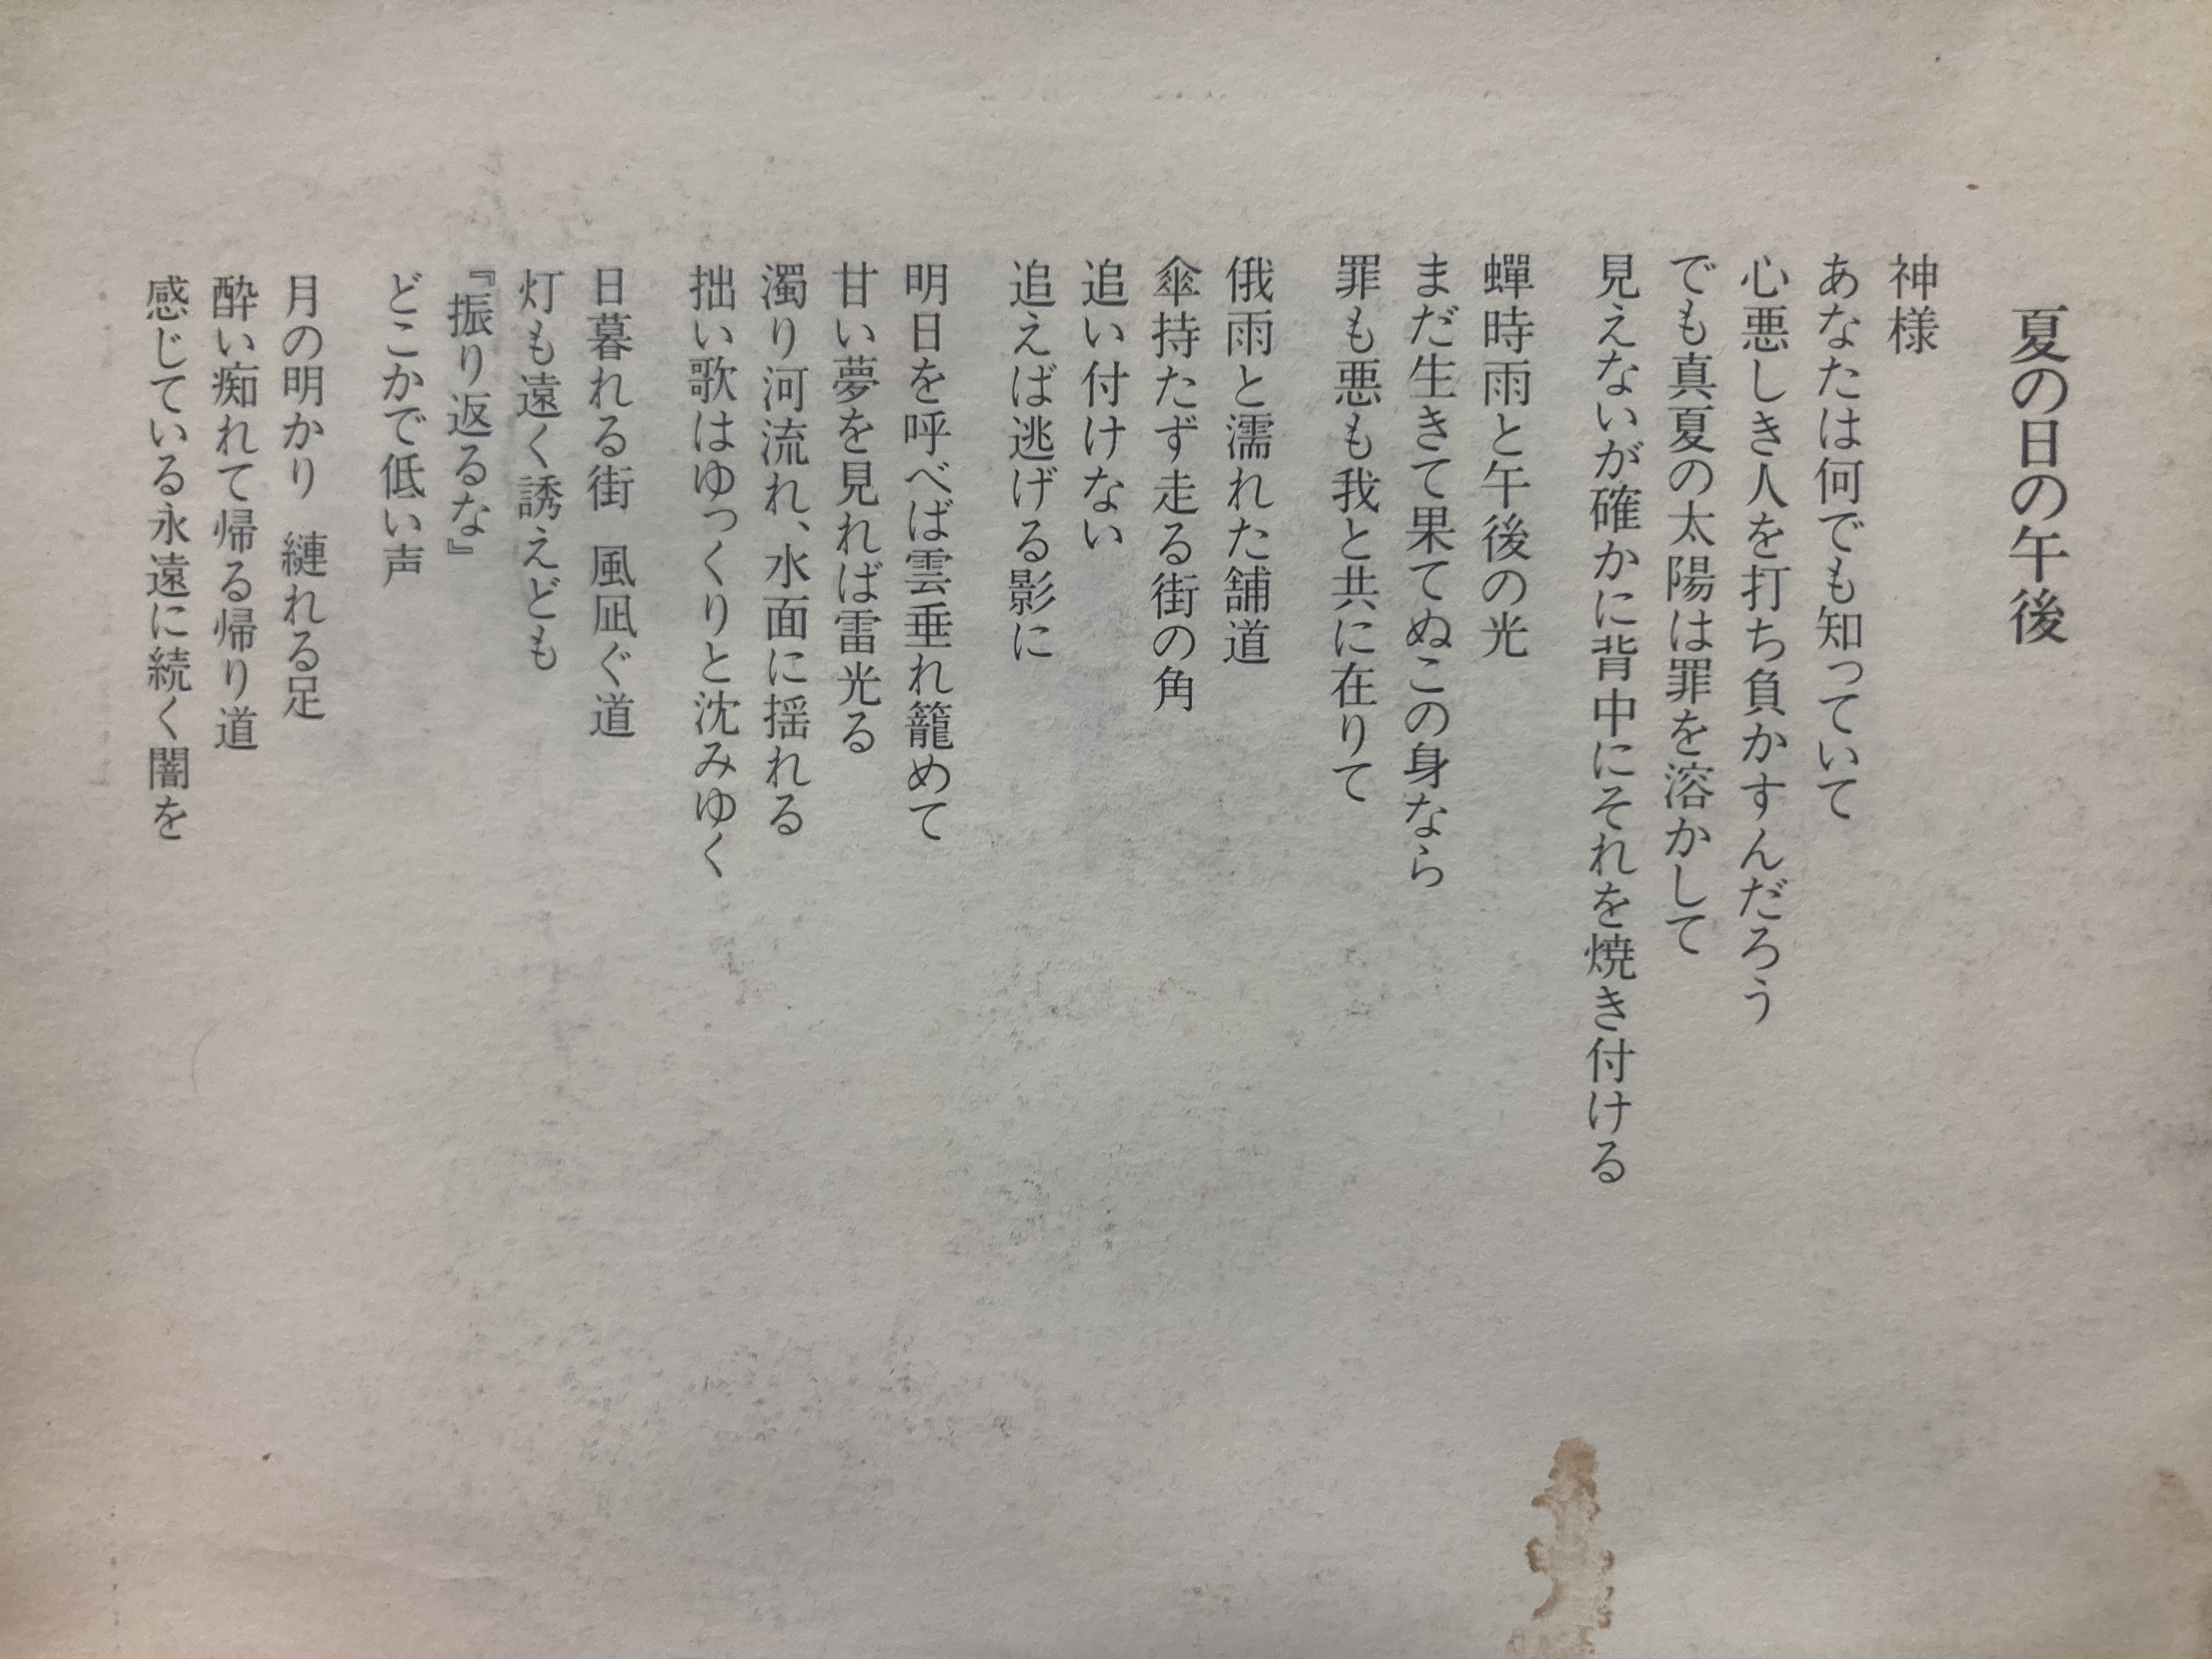 夏の日の午後
神様
あなたは何でも知っていて
心悪しき人を打ち負かすんだろう
でも真夏の太陽は罪を溶かして
見えないが確かに背中にそれを焼き付ける
蟬時雨と午後の光
まだ生きて果てぬこの身なら
罪も悪も我と共に在りて
俄雨と濡れた舗道
傘持たず走る街の角
追い付けない
追えば逃げる影に
明日を呼べば雲垂れ籠めて
甘い夢を見れば雷光る
濁り河流れ、水面に揺れる
拙い歌はゆっくりと沈みゆく
日暮れる街　風凪ぐ道
灯も遠く誘えども
『振り返るな』
どこかで低い声
月の明かり　縺れる足
酔い痴れて帰る帰り道
感じている永遠に続く闇を